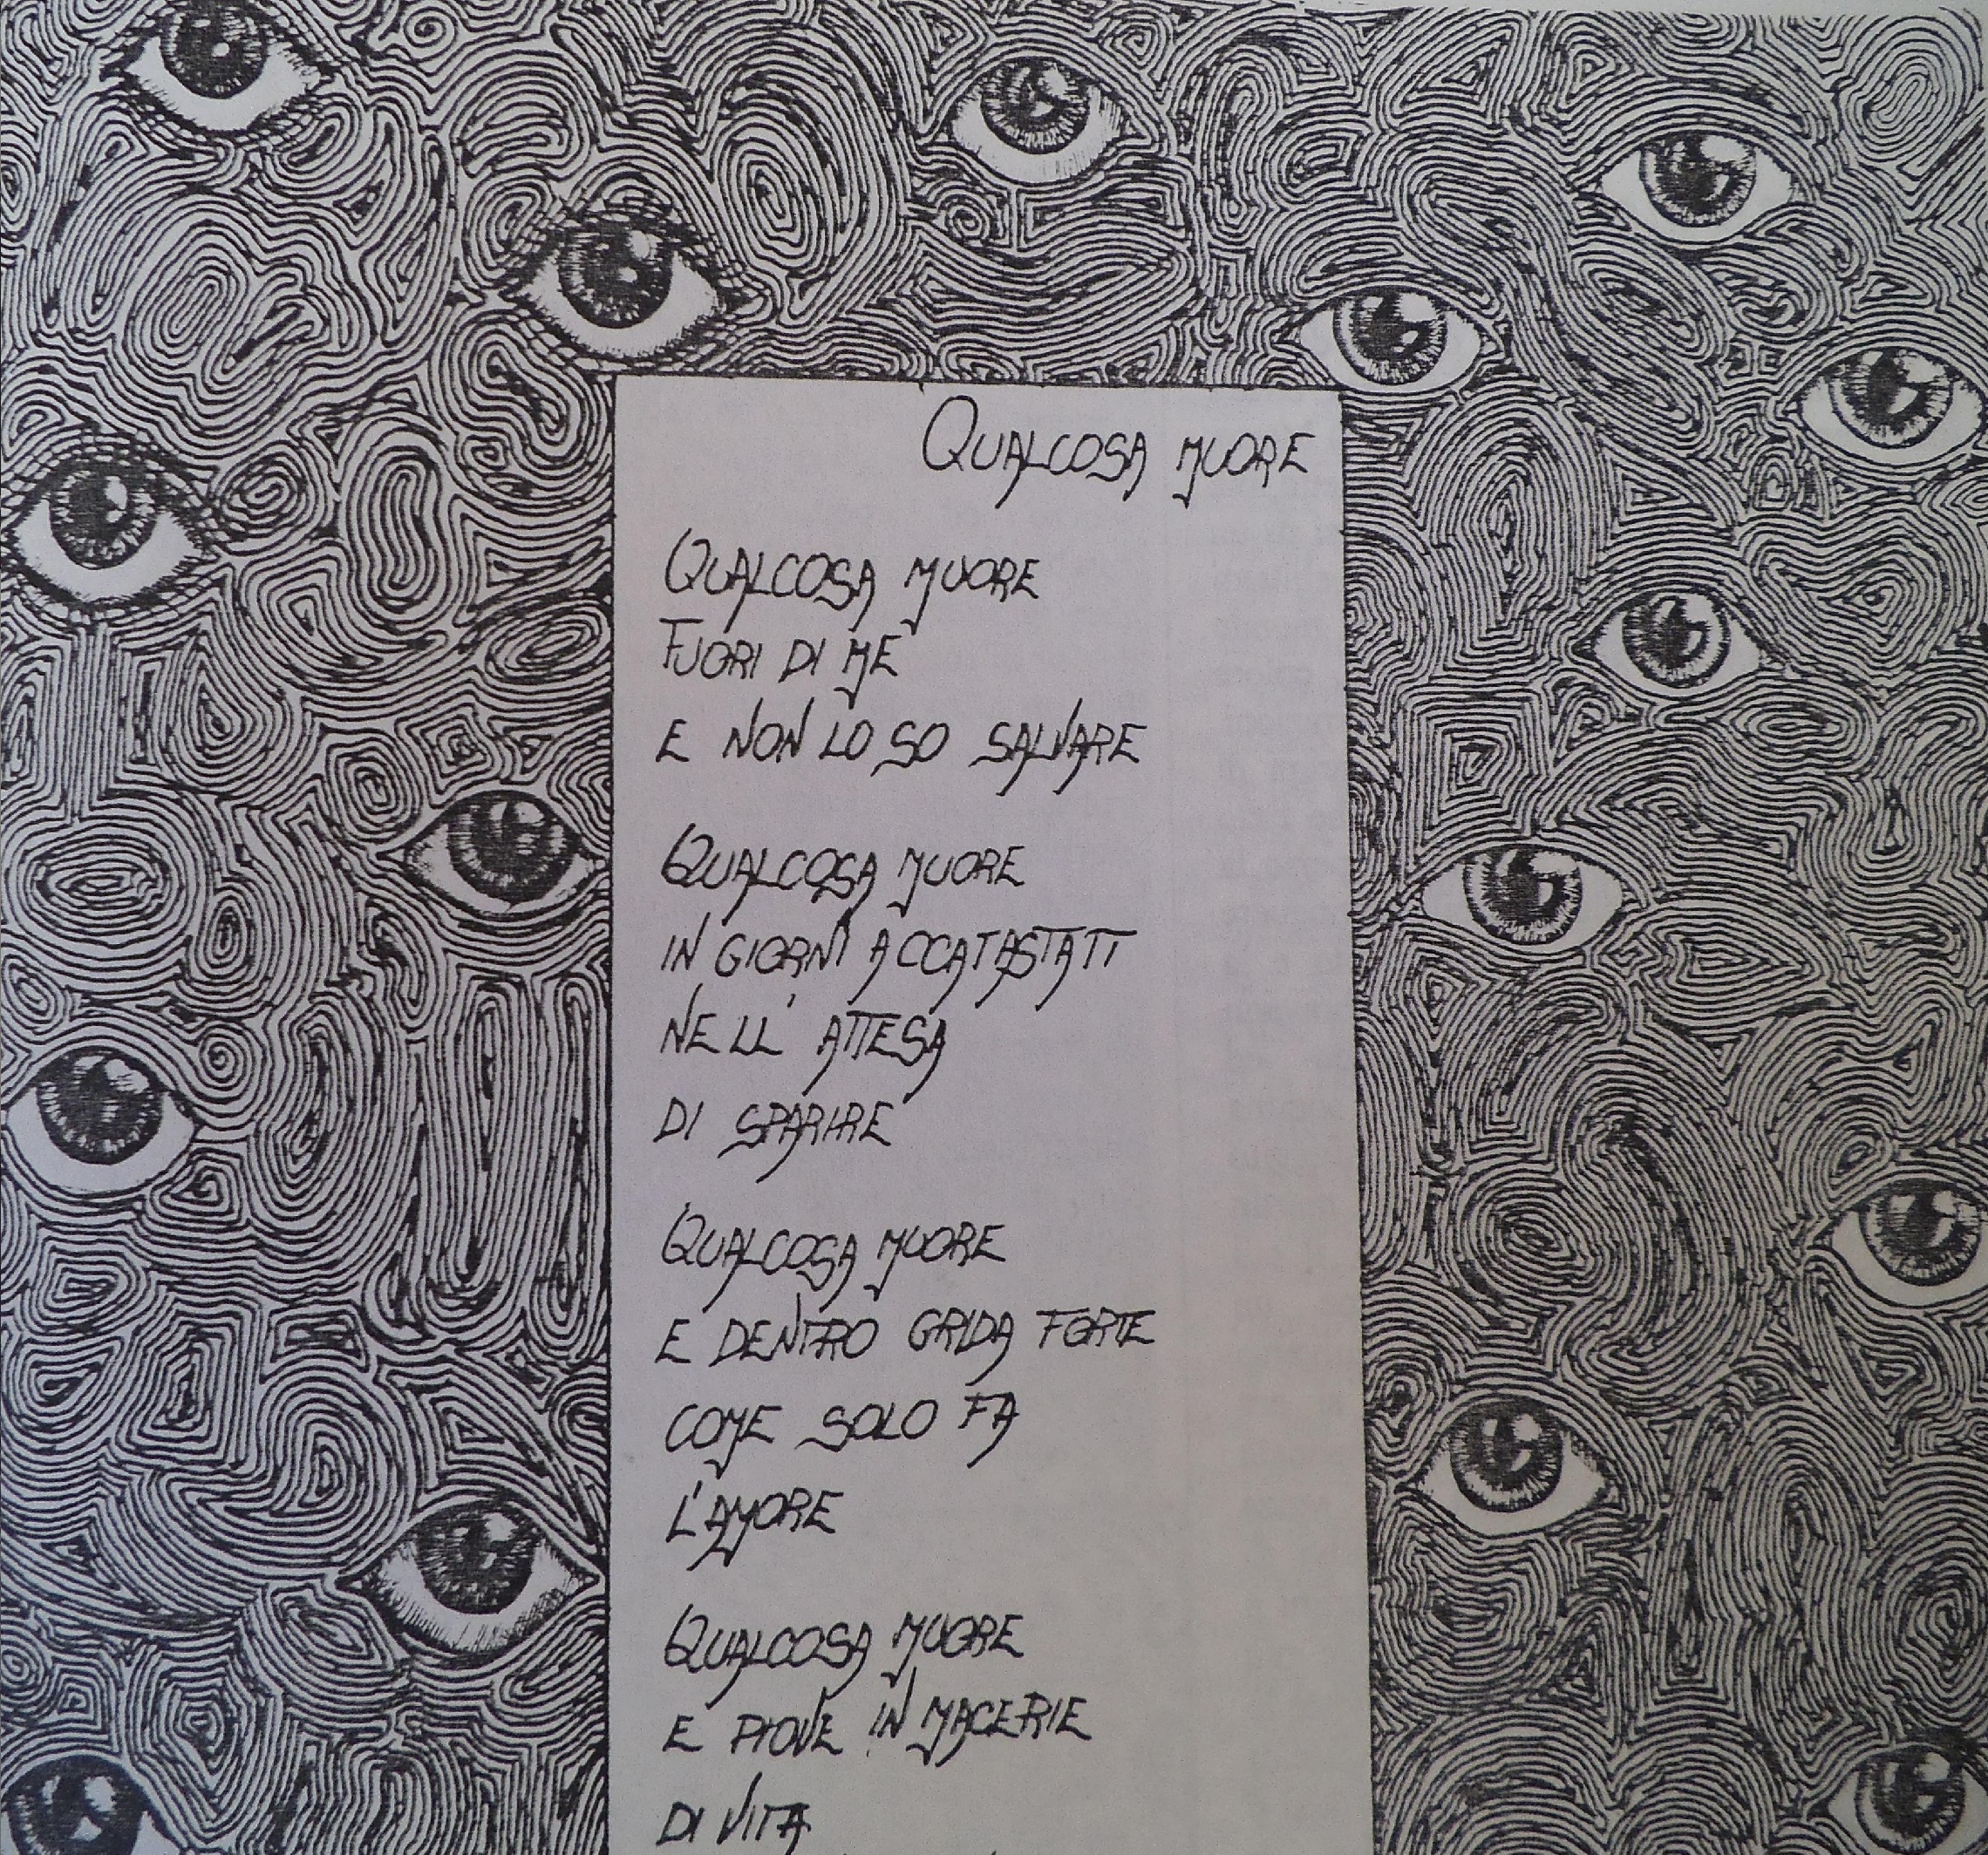 QUALCOSA MUORE
QUALCOSA MUORE
FUORI DI ME
E NON LO SO SALVARE
QUALCOSA MUORE
IN GIORNI ACCATASTATI
NELL' ATTESA
DI SPARIRE
QUALCOSA MUORE
E DENTRO GRIDA FORTE
COME SOLO FA
L'AMORE
QUALCOSA MUORE
E PIOVE IN MACERIE
DI VITA